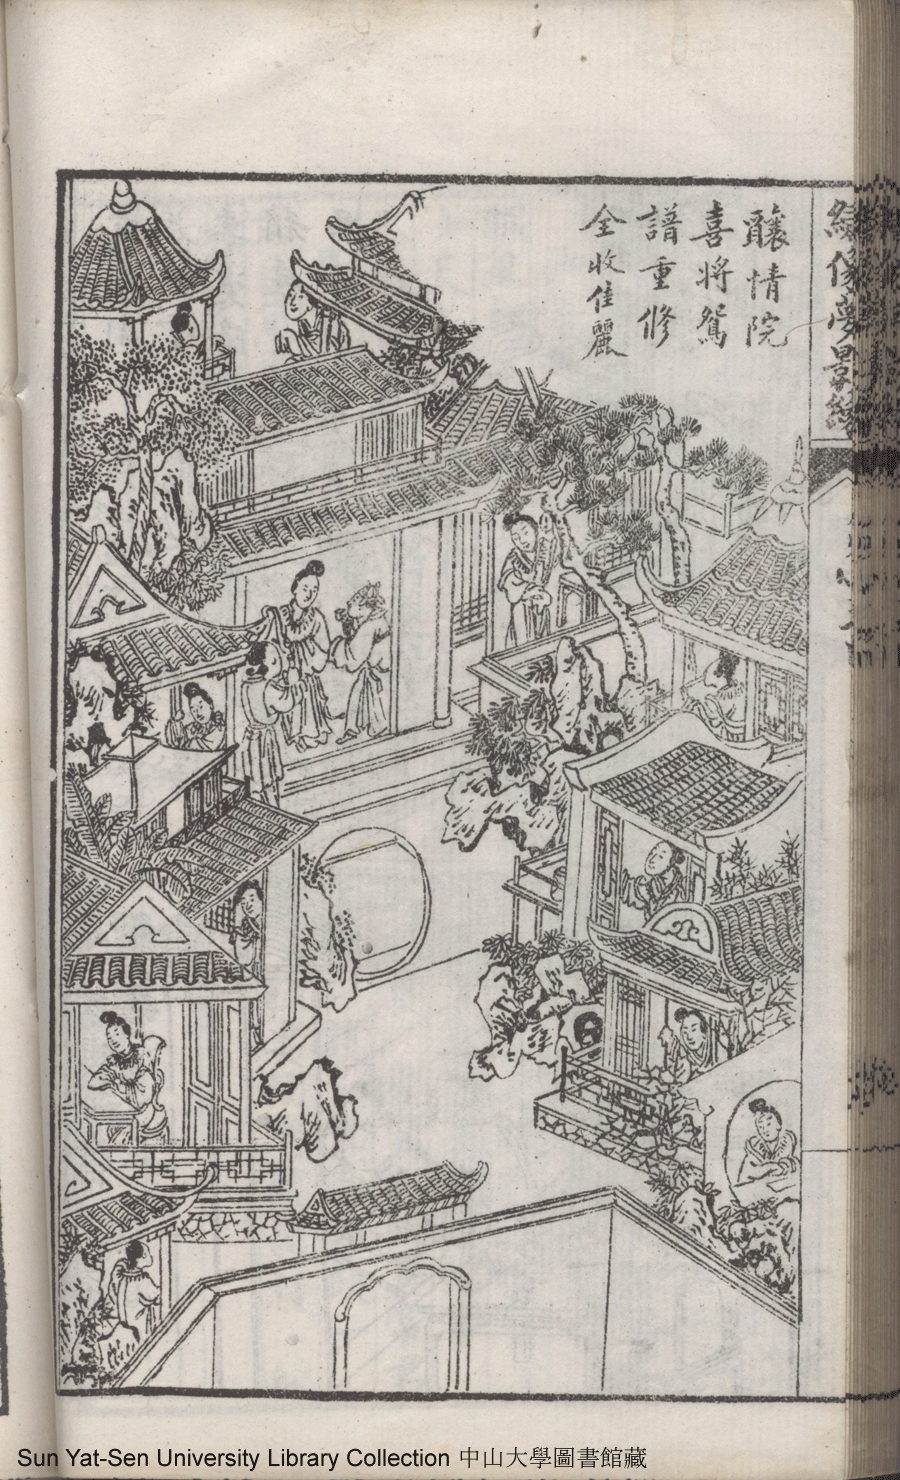 釀情院
喜將鴛
譜重修
全收佳麗
Sun Yat-Sen University Library Collection 中山大學圖書館藏